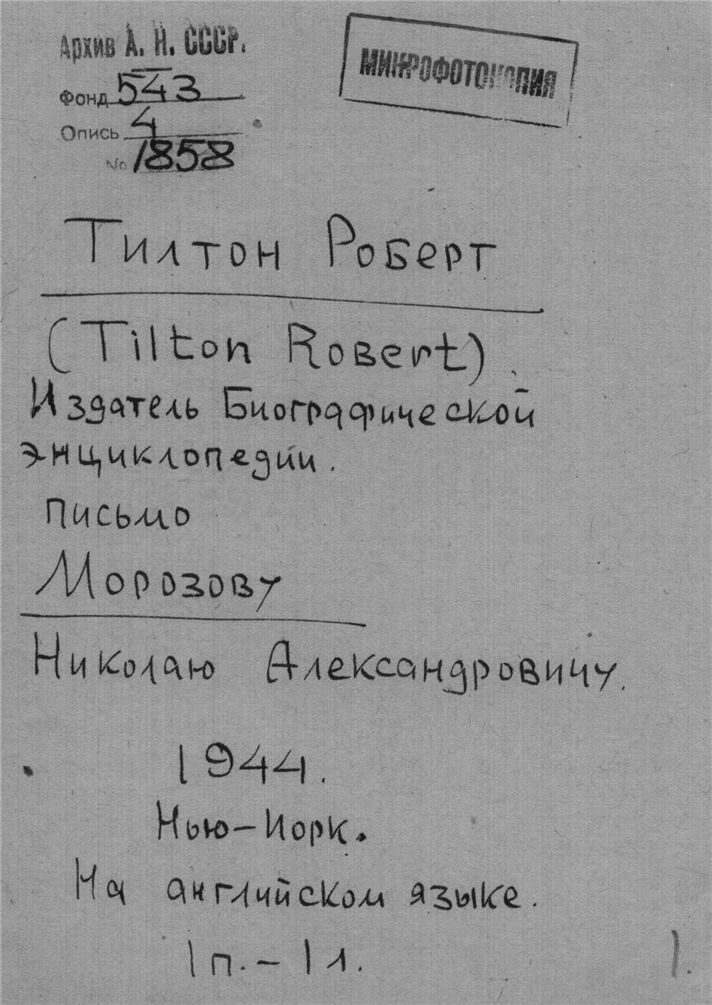 Архив А. Н. СССР.
Фонд 543
Опись 4
№ 1858
МИКРОФОТОКОПИЯ
Тилтон Роберт
(Tilton Robert).
Издатель Биографической
энциклопедии.
письмо
Морозову
Николаю Александровичу.
1944.
Нью-Иорк.
На английском языке.
1 п. – 1 л.
1.